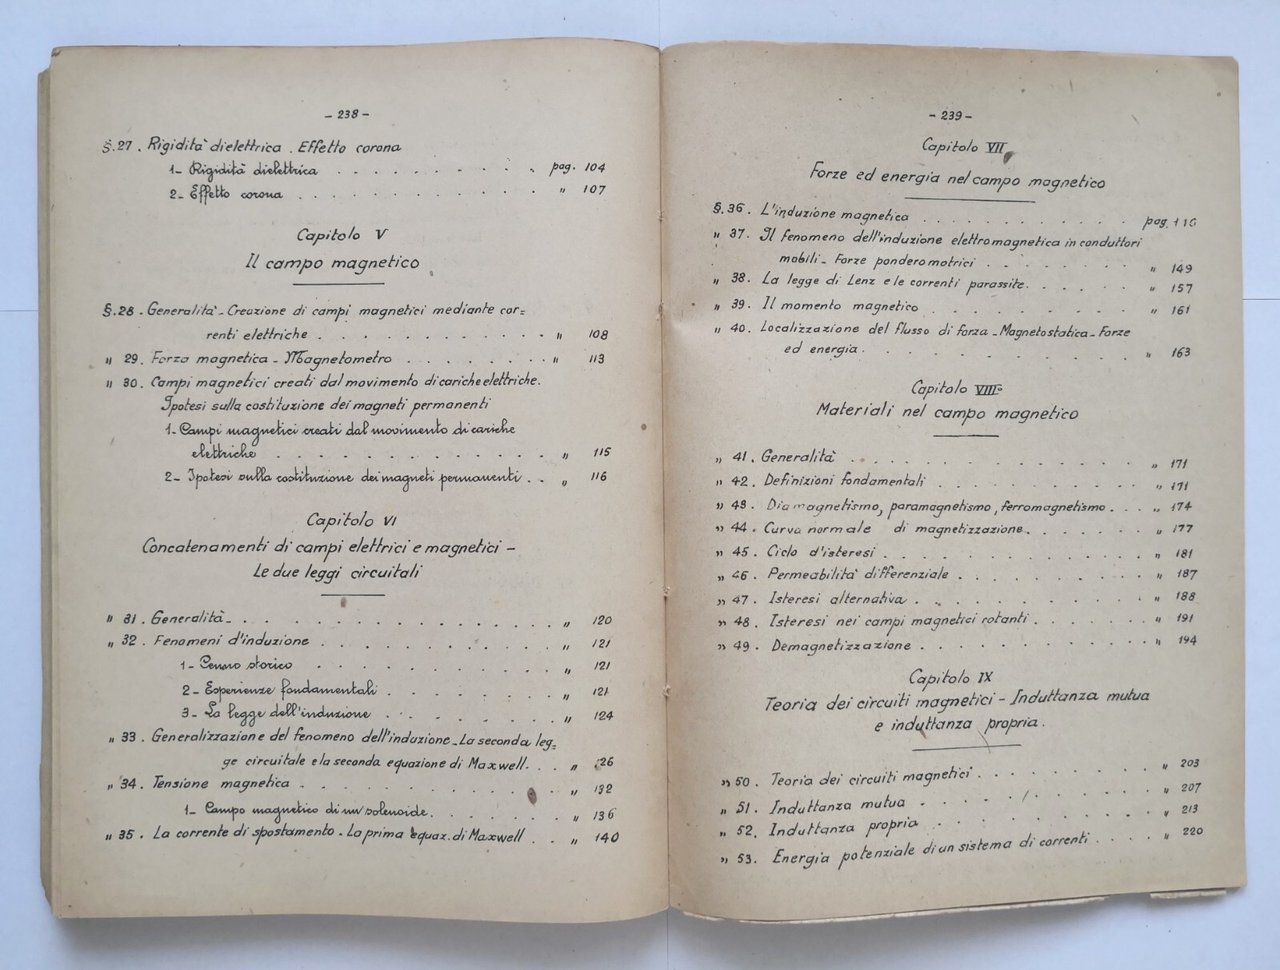 - 238 -
§.27. Rigidità dielettrica. Effetto corona
1- Rigidità dielettrica . . . . . . . . . pag. 104
2- Effetto corona . . . . . . . . . . " 107
Capitolo V
Il campo magnetico
§.28. Generalità - Creazione di campi magnetici mediante cor=
renti elettriche . . . . . . . . . . " 108
" 29. Forza magnetica - Magnetometro . . . . . . " 113
" 30. Campi magnetici creati dal movimento di cariche elettriche.
Ipotesi sulla costituzione dei magneti permanenti
1- Campi magnetici creati dal movimento di cariche
elettriche . . . . . . . . . . . " 115
2- Ipotesi sulla costituzione dei magneti permanenti . . " 116
Capitolo VI
Concatenamenti di campi elettrici e magnetici -
Le due leggi circuitali
" 31. Generalità . . . . . . . . . . . . " 120
" 32. Fenomeni d'induzione . . . . . . . . . " 121
1- Cenno storico . . . . . . . . . . " 121
2- Esperienze fondamentali . . . . . . . " 121
3- La legge dell'induzione . . . . . . . " 124
" 33. Generalizzazione del fenomeno dell'induzione - La seconda leg=
ge circuitale e la seconda equazione di Maxwell . . " 126
" 34. Tensione magnetica . . . . . . . . . . " 132
1- Campo magnetico di un solenoide . . . . . " 136
" 35. La corrente di spostamento - La prima equaz. di Maxwell . . " 140
- 239 -
Capitolo VII
Forze ed energia nel campo magnetico
§.36. L'induzione magnetica . . . . . . . . . pag.
" 37. Il fenomeno dell'induzione elettromagnetica in conduttori
mobili - Forze ponderomotrici . . . . . . . " 149
" 38. La legge di Lenz e le correnti parassite . . . . . " 157
" 39. Il momento magnetico . . . . . . . . . " 161
" 40. Localizzazione del flusso di forza - Magnetostatica - Forze
ed energia . . . . . . . . . . . . " 163
Capitolo VIII°
Materiali nel campo magnetico
" 41. Generalità . . . . . . . . . . . . " 171
" 42. Definizioni fondamentali . . . . . . . . " 171
" 43. Diamagnetismo, paramagnetismo, ferromagnetismo . . . " 174
" 44. Curva normale di magnetizzazione . . . . . " 177
" 45. Ciclo d'isteresi . . . . . . . . . . . " 181
" 46. Permeabilità differenziale . . . . . . . . " 187
" 47. Isteresi alternativa . . . . . . . . . . " 188
" 48. Isteresi nei campi magnetici rotanti . . . . . " 191
" 49. Demagnetizzazione . . . . . . . . . . " 194
Capitolo IX
Teoria dei circuiti magnetici - Induttanza mutua
e induttanza propria.
" 50. Teoria dei circuiti magnetici . . . . . . . " 203
" 51. Induttanza mutua . . . . . . . . . . " 207
" 52. Induttanza propria . . . . . . . . . . " 213
" 53. Energia potenziale di un sistema di correnti . . . . " 220